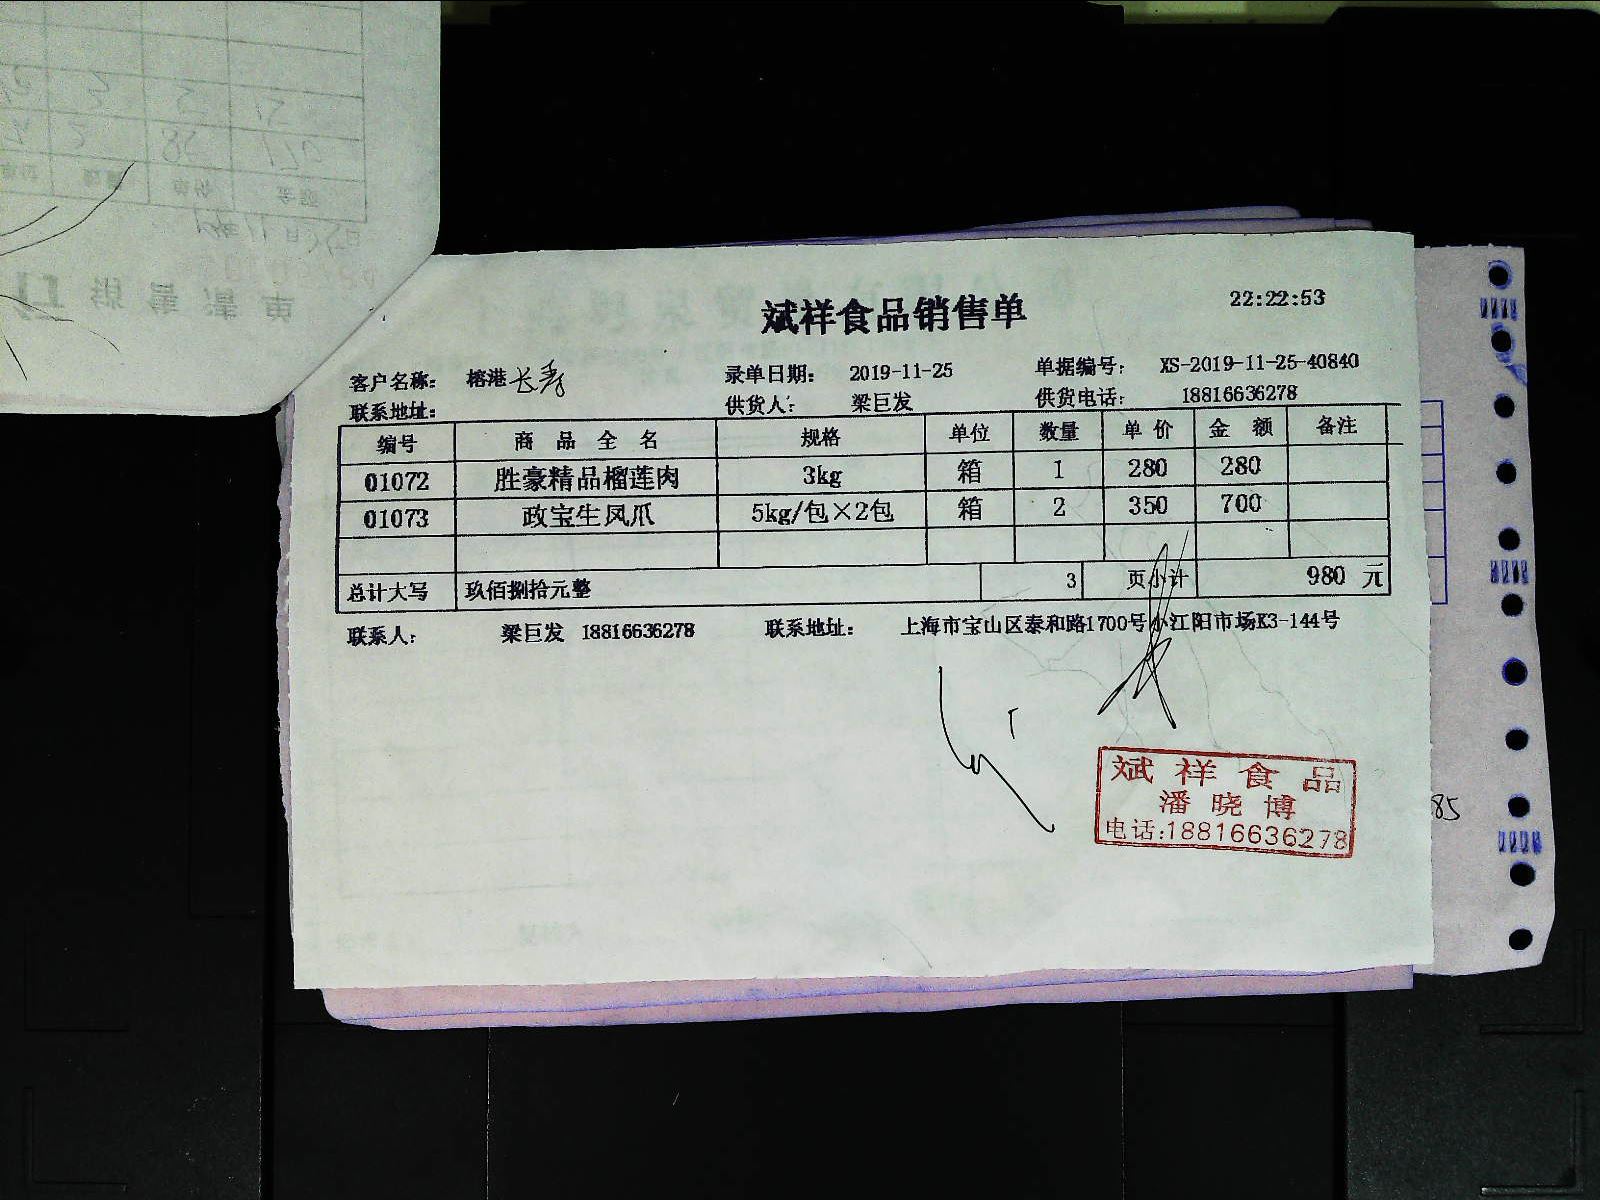 斌祥食品销售单
22:22:53
客户名称： 榕港长寿 录单日期： 2019-11-25 单据编号： XS-2019-11-25-40840
联系地址： 供货人： 梁巨发 供货电话： 18816636278
编号 商品全名 规格 单位 数量 单价 金额 备注
01072 胜豪精品榴莲肉 3kg 箱 1 280 280
01073 政宝生凤爪 5kg/包×2包 箱 2 350 700
总计大写 玖佰捌拾元整 3 页小计 980 元
联系人： 梁巨发 18816636278 联系地址： 上海市宝山区泰和路1700号小江阳市场K3-144号
斌祥食品
潘晓博
电话:18816636278
85